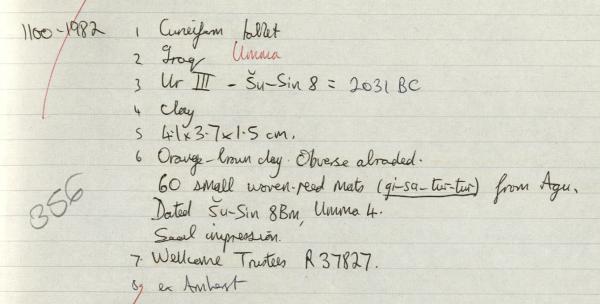 1100-1982 1 Cuneiform tablet
2 Iraq Umma
3 Ur III - Šu-Sin 8 = 2031 BC
4 Clay
5 4.1 x 3.7 x 1.5 cm.
6 Orange-brown clay. Obverse abraded.
60 small woven-reed mats (gi-sa-tur-tur) from Agu.
Dated Šu-Sin 8Bm, Umma 4.
Seal impression.
356
7. Wellcome Trustees R 37827.
8, ex Amherst